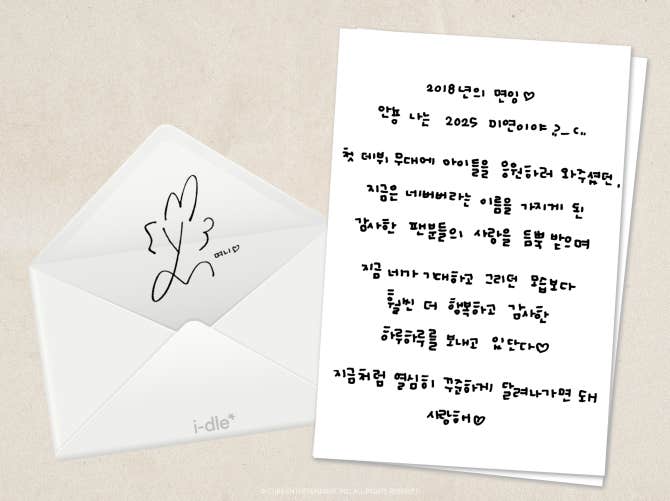 2018년의 면잉♡
안뇽 나는 2025 미연이야 २_८..
첫 데뷔 무대에 아이들을 응원하러 와주셨던,
지금은 네버버라는 이름을 가지게 된
감사한 팬분들의 사랑을 듬뿍 받으며
지금 네가 기대하고 그리던 모습보다
훨씬 더 행복하고 감사한
하루하루를 보내고 있단다♡
지금처럼 열심히 꾸준하게 달려나가면 돼
사랑해♡
며니♡
i-dle*
© CUBE ENTERTAINMENT, INC. ALL RIGHTS RESERVED